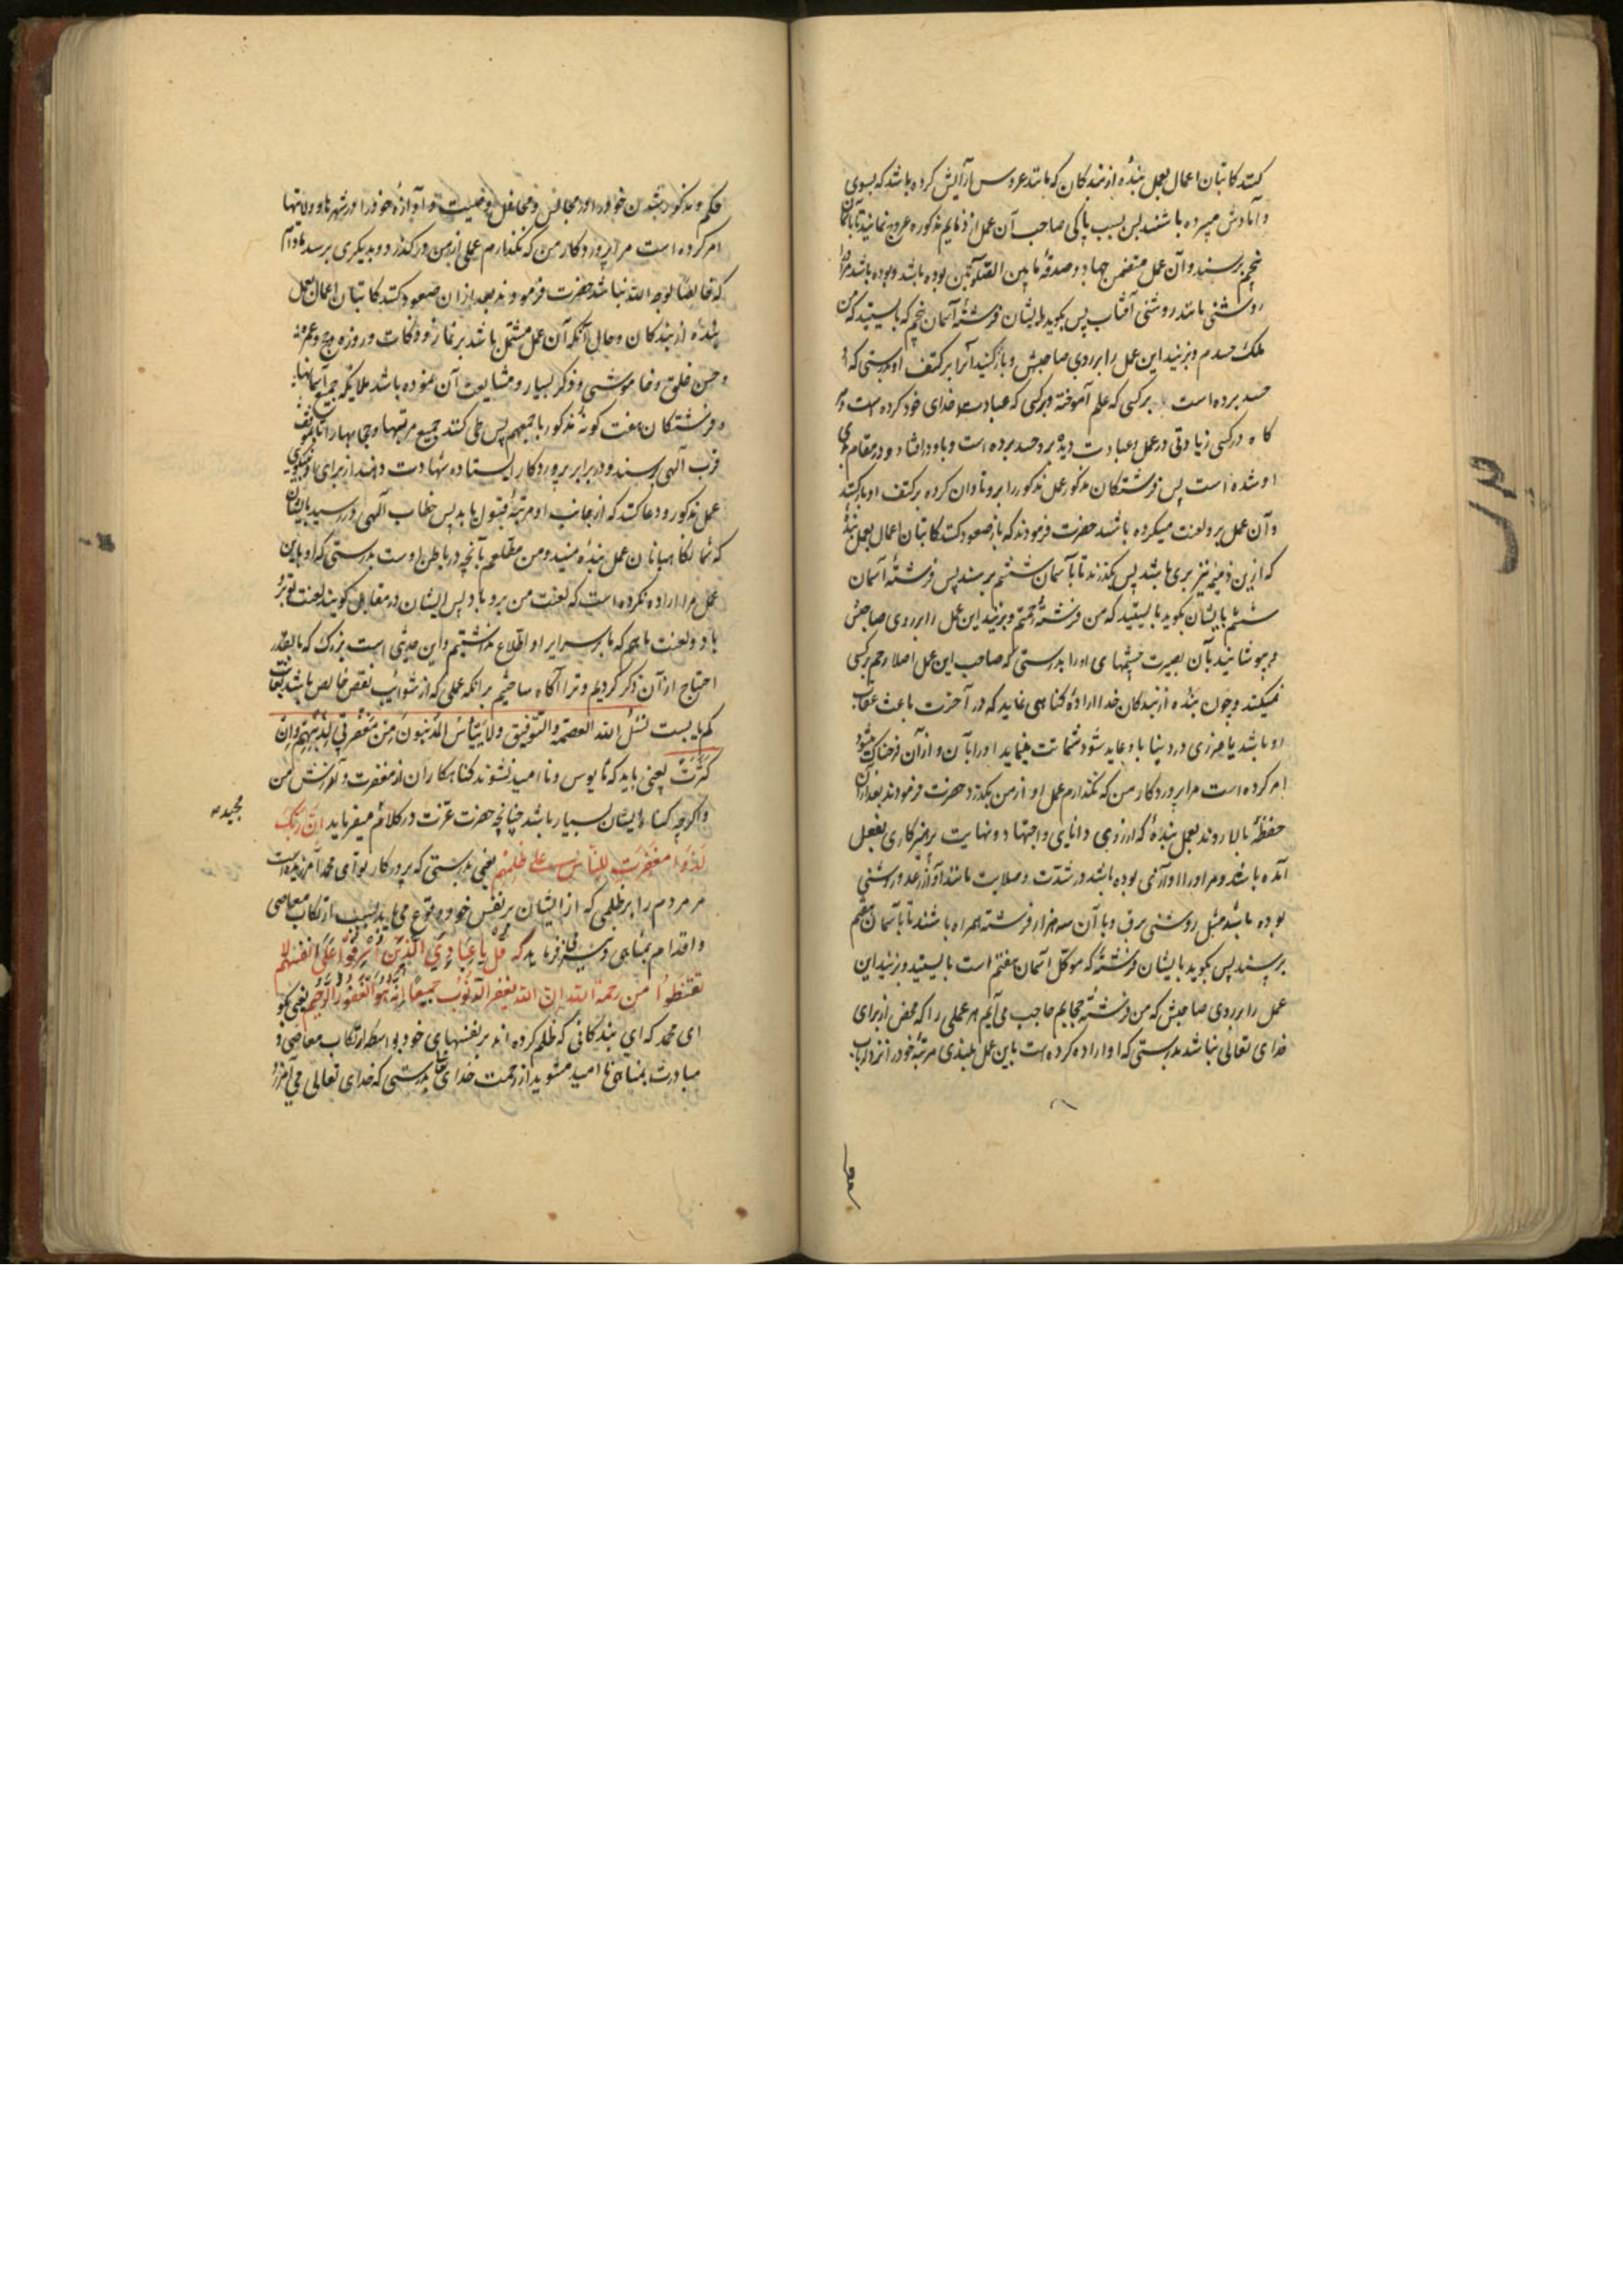 کنند کاتبان اعمال بعمل بندهٔ از بندکان که مانند عروس آرایش کرده باشد که بسوی
دامادش سپرده باشند پس بسبب پاکی صاحب آن عمل از ذمایم مذکوره عروج نمایند تا باسمان
پنجم برسند و آن عمل متضمن جهاد و صدقهٔ مابین الصلوتین بوده باشد و بوده باشد مر او را
روشنی مانند روشنی آفتاب پس بکوید بایشان فرشتهٔ آسمان پنجم که بایستید که من
ملک حسدم و بزنید این عمل را بر روی صاحبش و بار کنید آنرا بر کتف او بدرستی که او
حسد برده است بر کسی که علم آموخته و بر کسی که عبادت خدای خود کرده است و هر
کاه در کسی زیادتی در عمل و عبادت دیده برو حسد برده است و باو در افتاده و در مقام بدی
او شده است پس فرشتکان مذکور عمل مذکور را برو تاوان کرده بر کتف او بار کنند
و آن عمل برو لعنت میکرده باشد حضرت فرمودند که باز صعود کنند کاتبان اعمال بعمل بندهٔ
که ازین ذمیمه نیز بری باشد پس بگذرند تا بآسمان ششم برسند پس فرشتهٔ آسمان
ششم بایشان بکوید بایستید که من فرشتهٔ رحمتم و بزنید این عمل را بر روی صاحبش
و بپوشانید بآن بصیرت چشمهای او را بدرستی که صاحب این عمل اصلا رحم بر کسی
نمیکند و چون بندهٔ از بندکان خدا ارادهٔ کناهی نماید که در آخرت باعث عقاب
او باشد یا ضرری در دنیا باو عاید شود شماتت مینماید او را بآن و از آن فرحناک میشود
امر کرده است مرا پروردکار من که نکذارم عمل او از من بکذرد حضرت فرمودند بعد از آن
حفظهٔ بالا روند بعمل بندهٔ که از روی دانایی و اجتهاد و نهایت پرهیزکاری بفعل
آمده باشد و مر او را آوازی بوده باشد در شدت و صلابت مانند آواز رعد و روشنی
بوده باشد مثل روشنی برق و با آن سه هزار فرشته همراه باشند تا بآسمان هفتم
برسند پس بکوید بایشان فرشتهٔ که موکل آسمان هفتم است بایستید و بزنید این
عمل را بر روی صاحبش که من فرشتهٔ حجابم حاجب می‌آیم هر عملی را که محض از برای
خدای تعالی نباشد بدرستی که او اراده کرده است باین عمل بلندی مرتبهٔ خود را نزد ارباب
حکم و مذکور شدن خود را در مجالس و محافل و صیت و آوازهٔ خود را در شهرها و ولایتها
امر کرده است مرا پروردکار من که نکذارم عملی از من درکذرد و بدیکری برسد مادام
که خالصا لوجه الله نباشد حضرت فرمودند بعد از آن صعود کنند کاتبان اعمال بعمل
بندهٔ از بندکان و حال آنکه آن عمل مشتمل باشد بر نماز و زکات و روزه و حج و عمره
و حسن خلق و خاموشی و ذکر بسیار و مشایعت آن نموده باشد ملایکه جمیع آسمانها
و فرشتکان هفت کونه مذکور باجمعهم پس طی کنند جمیع مرتبها و حجابها را تا بموقف
قرب آلهی برسند و در برابر پروردکار ایستاده شهادت دهند از برای او بنیکویی
عمل مذکور و دعا کنند که از جانب او مرتبهٔ قبول یابد پس خطاب آلهی در رسید بایشان
که شما نکاهبانان عمل بندهٔ منید و من مطلعم بآنچه در باطن اوست بدرستی که او باین
عمل مرا اراده نکرده است که لعنت من برو باد پس ایشان در مقابل کویند لعنت تو برو
باد و لعنت ما هم که ما بر سرایر او اطلاع نداشتیم و این حدیثی است بزرک که ما بقدر
احتیاج از آن ذکر کردیم و ترا آکاه ساختیم بر آنکه عملی که از شوایب نقص خالص باشد بغایت
کم یابست نسئل الله العصمة و التوفیق ولا ییأس المذنبون من مغفرتی لذنوبهم وان
کثرت یعنی باید که مایوس و نا امید نشوند کناهکاران از مغفرت و آمرزش من
و اکرچه کناه ایشان بسیار باشد چنانچه حضرت عزت در کلام میفرماید ان ربک
مجیده
لذو مغفرت للناس علی ظلمهم یعنی بدرستی که پروردکار تو ای محمد آمرزیده است
مر مردم را بر ظلمی که از ایشان بر نفس خود وقوع می‌یابد بسبب ارتکاب معاصی
و اقدام بمناهی و نیز فرماید که قل یا عبادی الذین اسرفوا علی انفسهم لا
تقنطوا من رحمة الله ان الله یغفر الذنوب جمیعا انه هو الغفور الرحیم یعنی بکو
ای محمد که ای بندکانی که ظلم کرده اند بر نفسهای خود بواسطه ارتکاب معاصی و
مبادرت بمناهی نا امید مشوید از رحمت خدای بدرستی که خدای تعالی می‌آمرزد